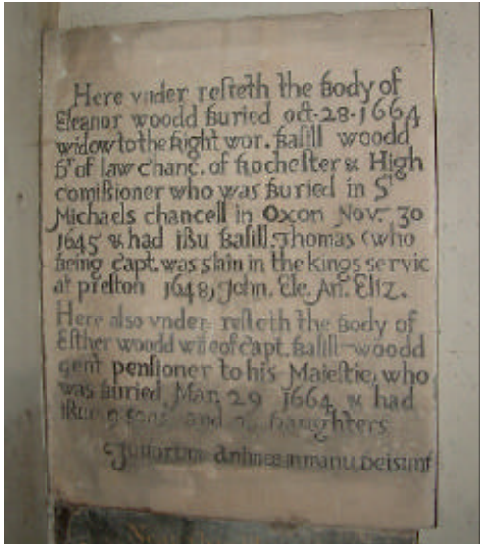 Here vnder resteth the Body of
Eleanor woodd Buried oct. 28. 1664
widow to the Right wor. Basill woodd
Dr of law chanc. of Rochester & High
comissioner who was Buried in St
Michaels chancell in Oxon Nov. 30
1645 & had issu Basill. Thomas (who
being Capt. was slain in the kings servic
at preston 1648) John. Ele. An. Eliz.
Here also vnder resteth the Body of
Esther woodd wife of Capt. Basill woodd
gent pensioner to his Maiestie, who
was Buried Mar. 29 1664 & had
issue sons and Daughters
Justorum Animae in manu Dei sunt